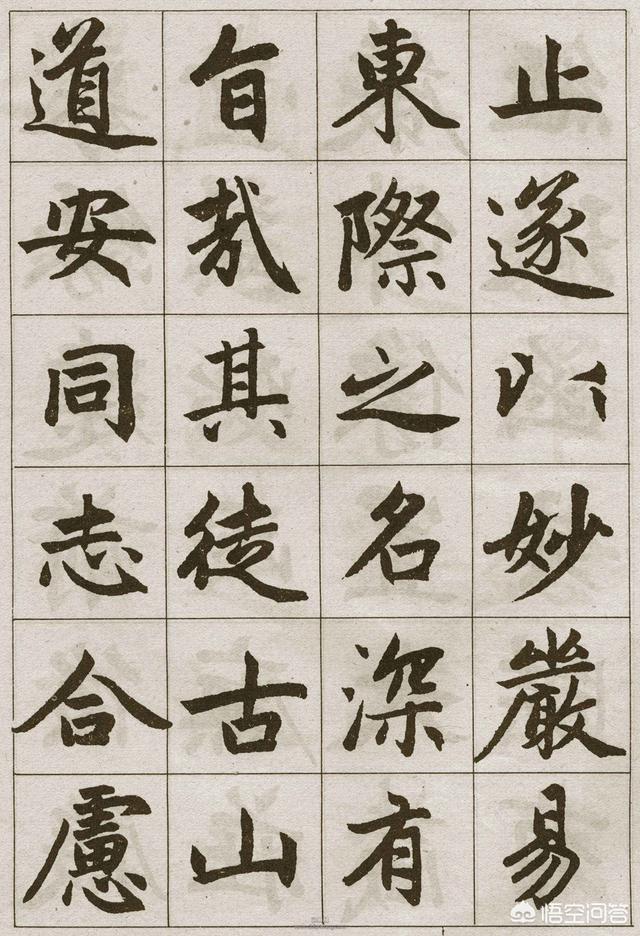 止遂以妙嚴易
東際之名深有
旨哉其徒古山
道安同志合慮
悟空问答